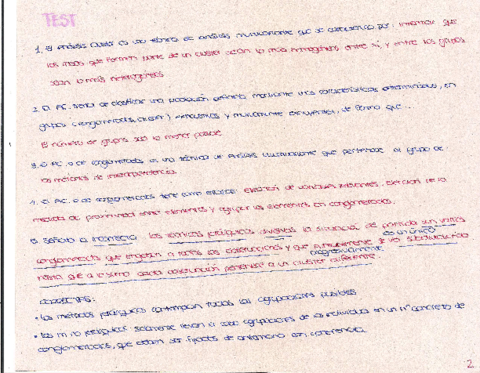 TEST
1. El Análisis Cluster es una técnica de análisis multivariante que se caracteriza por: intentar que
los individuos que forman parte de un cluster sean lo más homogéneos entre sí, y entre los grupos
sean lo más heterogéneos
2. El AC, trata de clasificar una población definida mediante unas características determinadas, en
grupos (conglomerados, cluster) exhaustivos y mutuamente excluyentes, de forma que...
El número de grupos sea lo menor posible
3. El AC, o de conglomerados es una técnica de análisis multivariante que pertenece al grupo de
los métodos de interdependencia.
4. El AC, o de conglomerados tiene como etapas: elección de variables relevantes, elección de la
medida de proximidad entre elementos y agrupar los elementos en conglomerados.
5. Señala la incorrecta: las técnicas jerárquicas divisivas la situación de partida son varios
conglomerados que engloban a todas las observaciones y que
es un único
progresivamente se va subdividiendo
hasta que al final cada observación pertenece a un cluster diferente.
CORRECTAS:
• Los métodos jerárquicos contemplan todas las agrupaciones posibles
• Los m. no jerárquicos solamente llevan a cabo agrupaciones de los individuos en un nº concreto de
conglomerados, que deben ser fijados de antemano con coherencia.
2